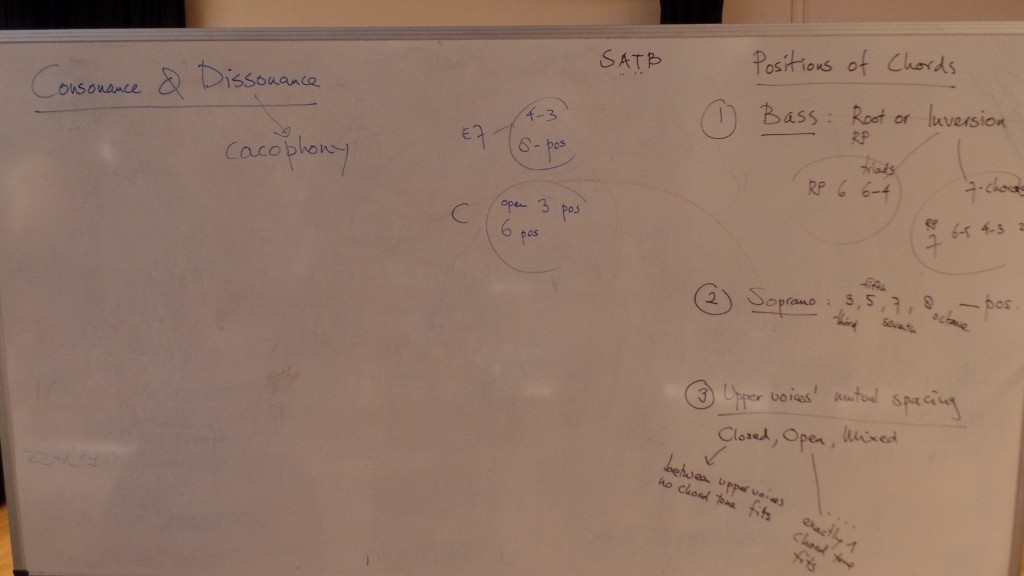 Consonance & Dissonance
cacophony
SATB
E7
4-3
8-pos
C
open 3 pos
6 pos
Positions of Chords
1 Bass: Root or Inversion
RP
triads
RP 6 6-4
7-chords
RP
7 6-5 4-3 2
2 Soprano: 3, 5, 7, 8, — pos.
fifth
third seventh octave
3 Upper voices' mutual spacing
Closed, Open, Mixed
between upper voices
no chord tone fits
exactly 1
chord tone
fits